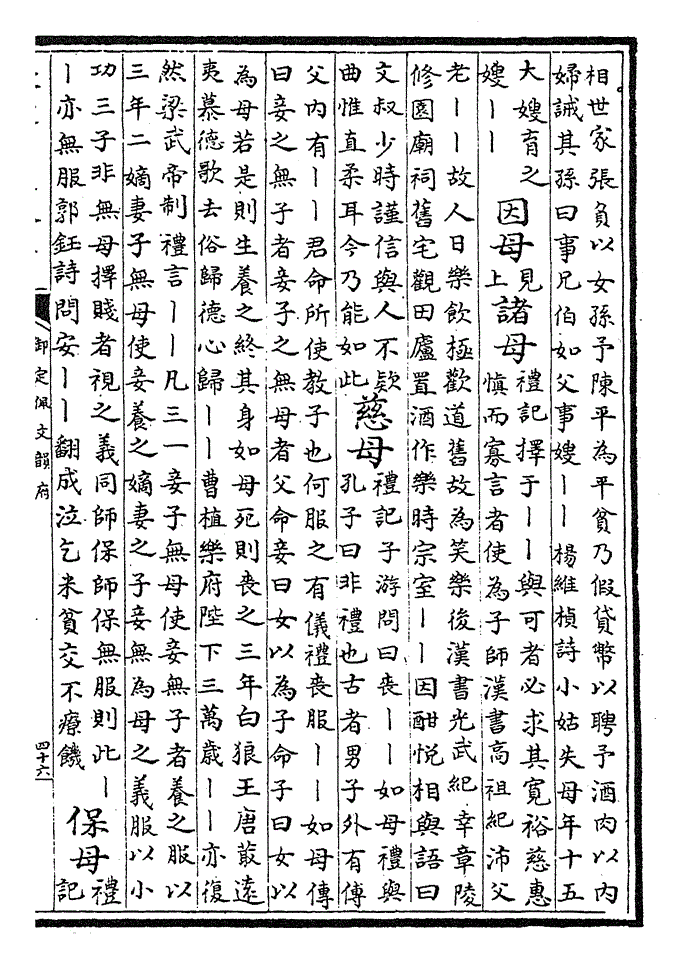 相世家張負以女孫予陳平為平貧乃假貸幣以聘予酒肉以内
婦誡其孫曰事兄伯如父事嫂丨丨楊維楨詩小姑失母年十五
大嫂育之
嫂丨丨
因母
見
上
諸母
禮記擇于丨丨與可者必求其寬裕慈惠
慎而寡言者使為子師漢書高祖紀沛父
老丨丨故人日樂飲極歡道舊故為笑樂後漢書光武紀幸章陵
修園廟祠舊宅觀田廬置酒作樂時宗室丨丨因酣悦相與語曰
文叔少時謹信與人不欵
曲惟直柔耳今乃能如此
慈母
禮記子游問曰喪丨丨如母禮與
孔子曰非禮也古者男子外有傅
父内有丨丨君命所使教子也何服之有儀禮喪服丨丨如母傳
曰妾之無子者妾子之無母者父命妾曰女以為子命子曰女以
為母若是則生養之終其身如母死則喪之三年白狼王唐菆遠
夷慕德歌去俗歸德心歸丨丨曹植樂府陛下三萬歲丨丨亦復
然梁武帝制禮言丨丨凡三一妾子無母使妾無子者養之服以
三年二嫡妻子無母使妾養之嫡妻之子妾無為母之義服以小
功三子非無母擇賤者視之義同師保師保無服則此丨
丨亦無服郭鈺詩問安丨丨翻成泣乞米貧交不療饑
保母
禮
記
御定佩文韻府
四十六